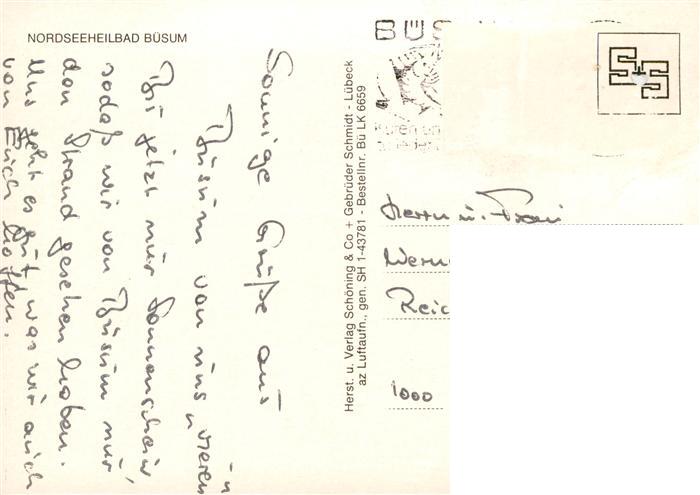 NORDSEEHEILBAD BÜSUM
Sonnige Grüße aus
Büsum von uns
Bis jetzt nur Sonnenschein,
sodaß wir von Büsum nur
den Strand gesehen haben.
Uns geht es gut was wir auch
von Euch hoffen.
Herst. u. Verlag Schöning & Co + Gebrüder Schmidt - Lübeck
az Luftaufn., gen. SH 1-43781 - Bestellnr. Bü LK 6659
BÜS
Kuren un
Herrn u. Frau
Wern
Reic
1000